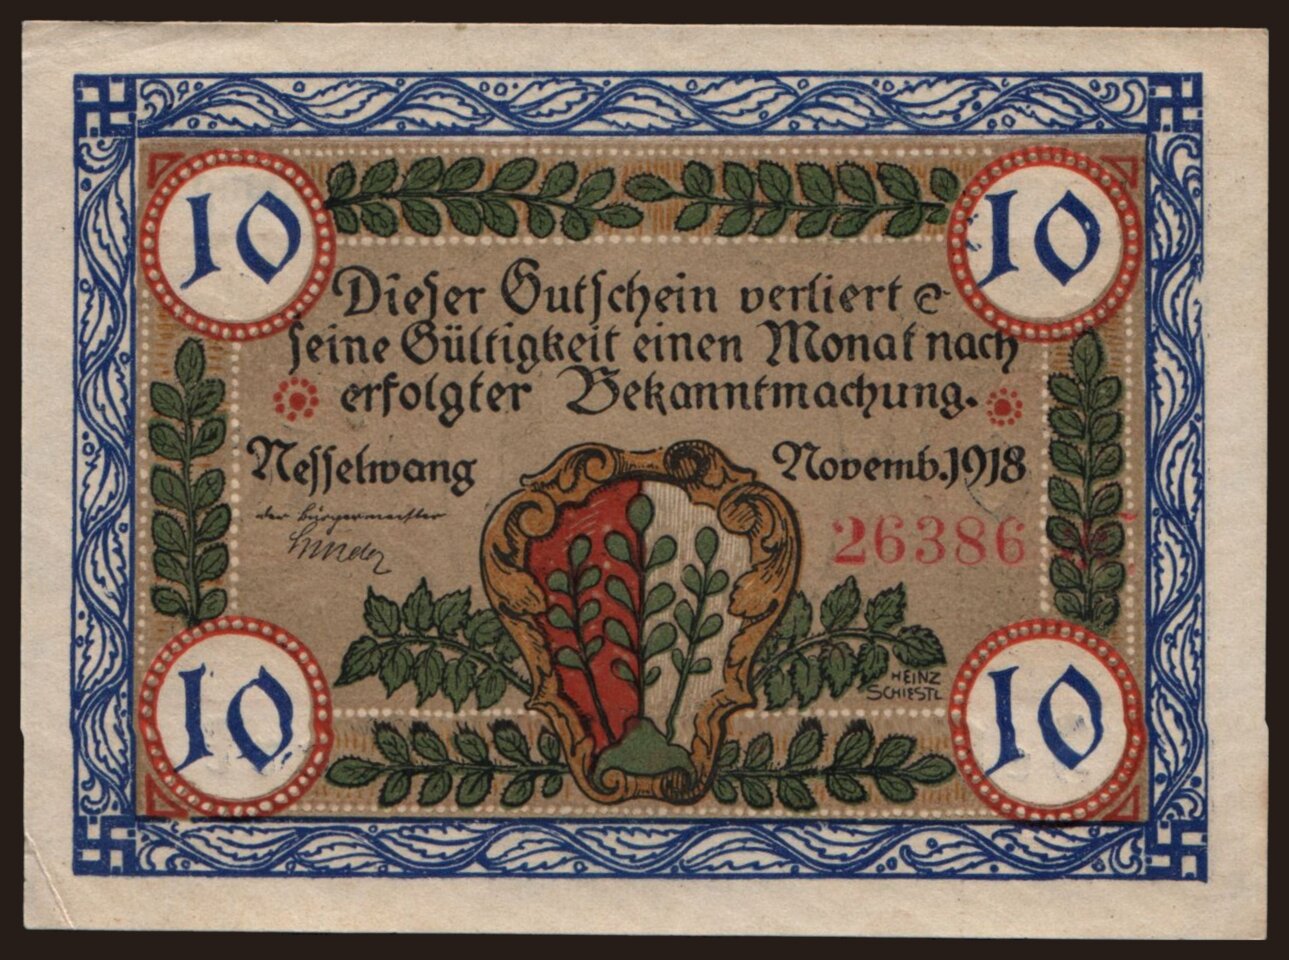 10 10
Dieser Gutschein verliert
seine Gültigkeit einen Monat nach
erfolgter Bekanntmachung.
Nesselwang Novemb. 1918
der Bürgermeister
26386
HEINZ
SCHIESTL
10 10